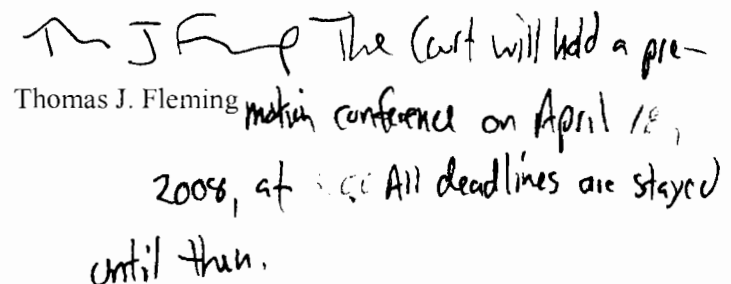 Th J Fleming The Court will hold a pre-
Thomas J. Fleming motion conference on April 18,
2008, at All deadlines are stayed
until then.